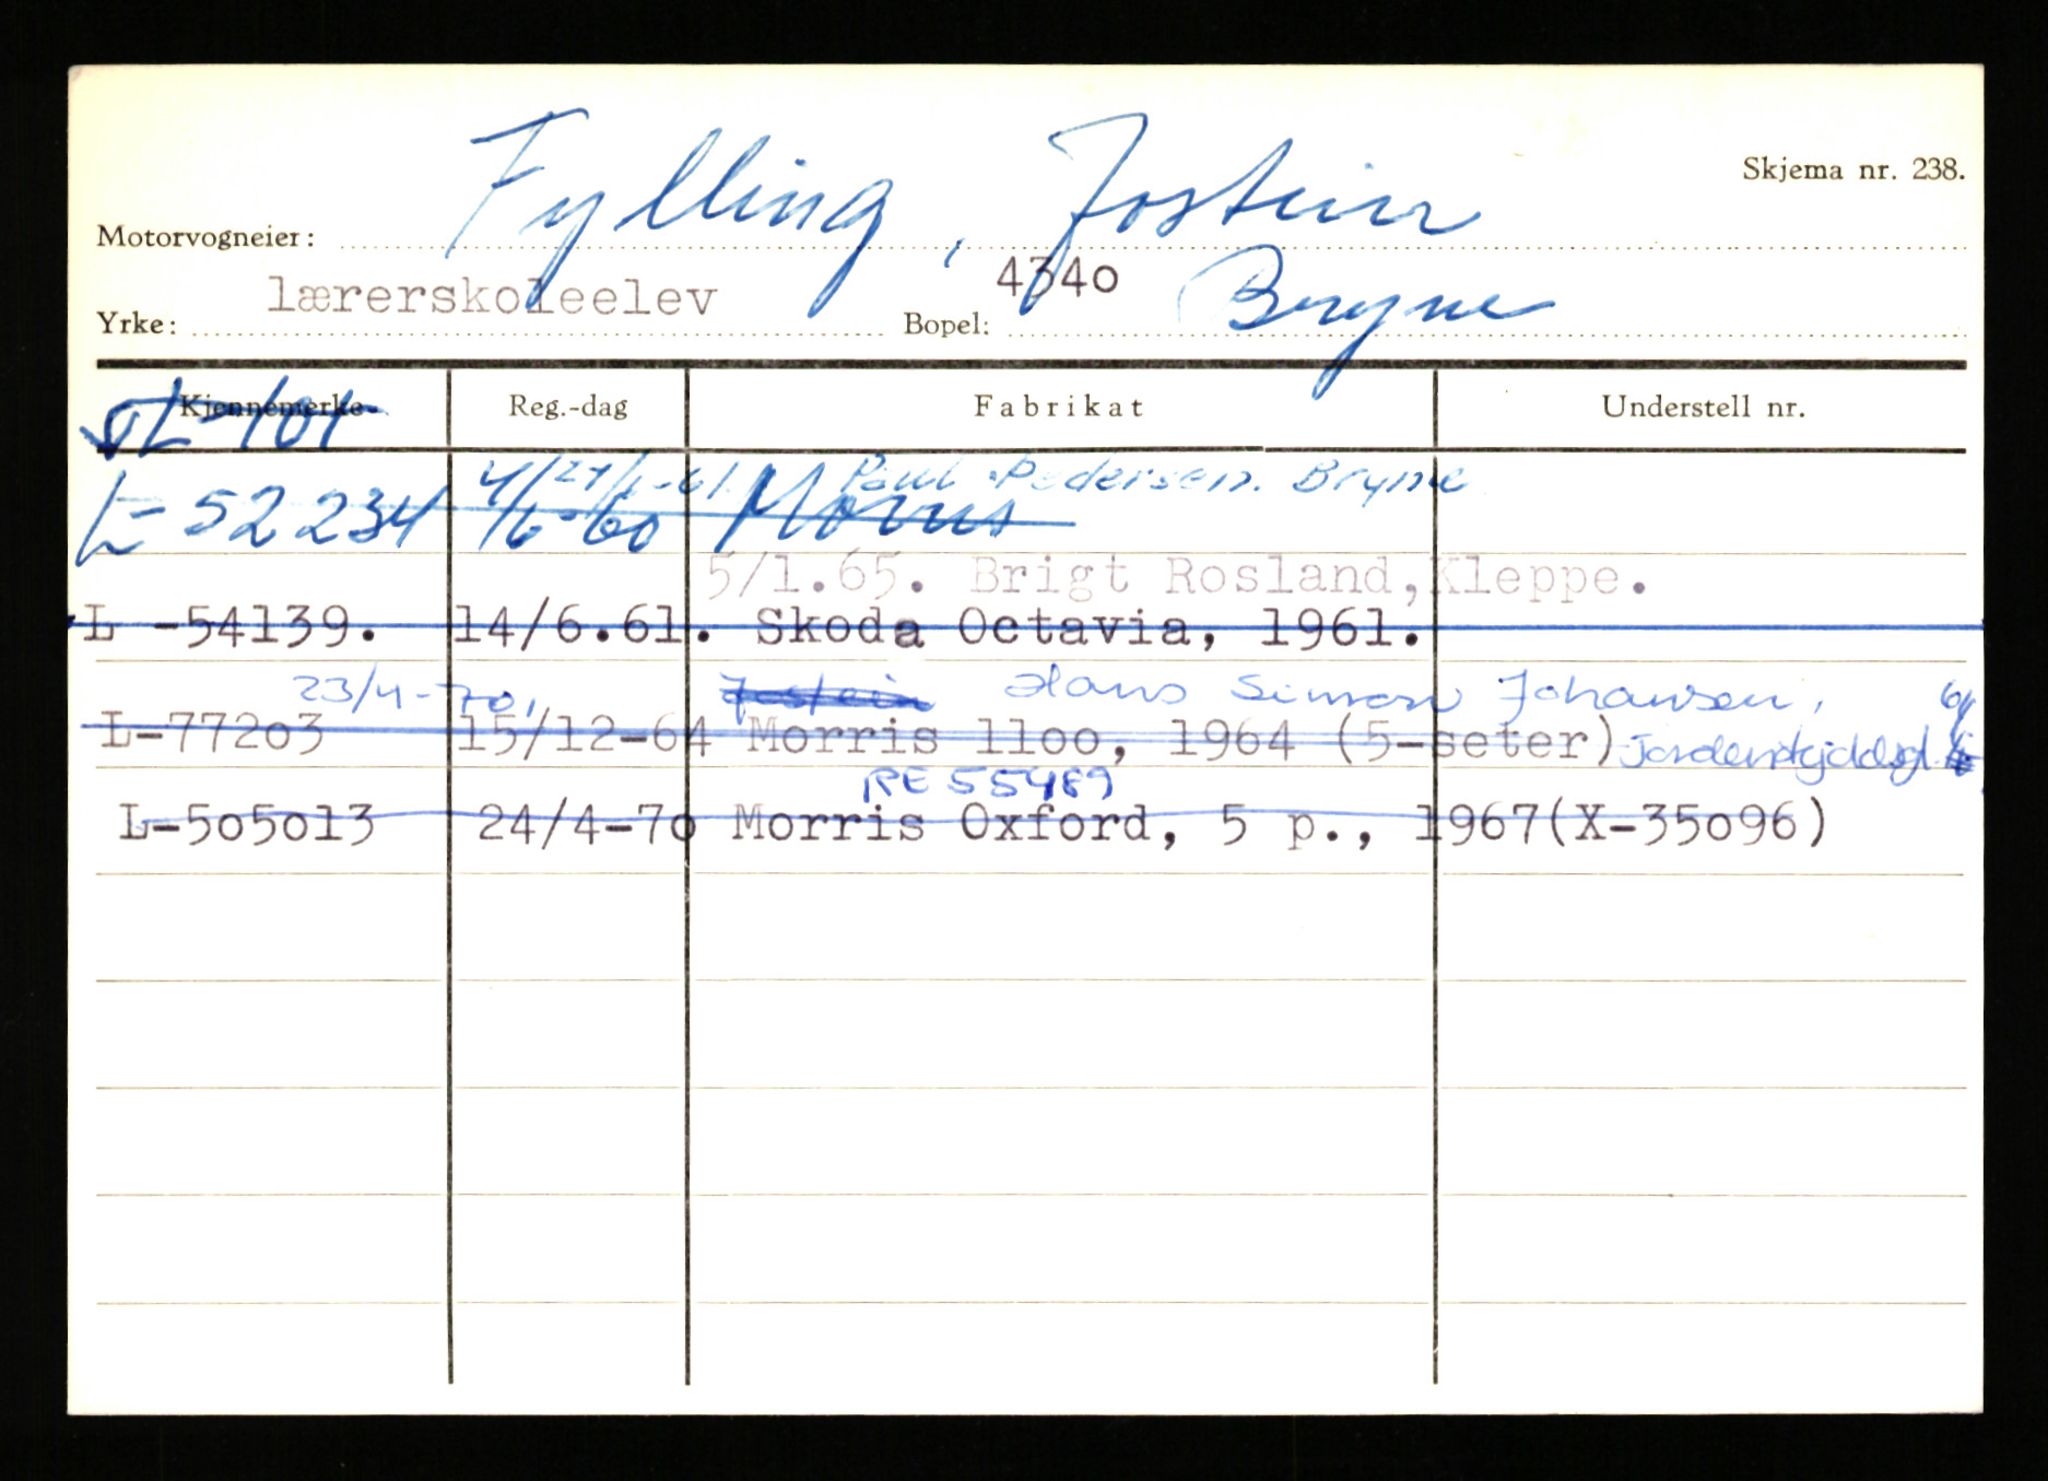 Skjema nr. 238.
Motorvogneier: Fylling, Jostein
Yrke: lærerskoleelev Bopel: 4340 Bryne
Kjennemerke Reg.-dag Fabrikat Understell nr.
L-101
Paul Pedersen. Bryne
L-52234 4/6-60 Morris
5/1.65. Brigt Rosland, Kleppe.
L -54139. 14/6.61. Skoda Octavia, 1961.
23/4-70, Jostein Hans Simon Johansen,
L-77203 15/12-64 Morris 1100, 1964 (5-seter)
RE 55489
L-505013 24/4-70 Morris Oxford, 5 p., 1967(X-35096)